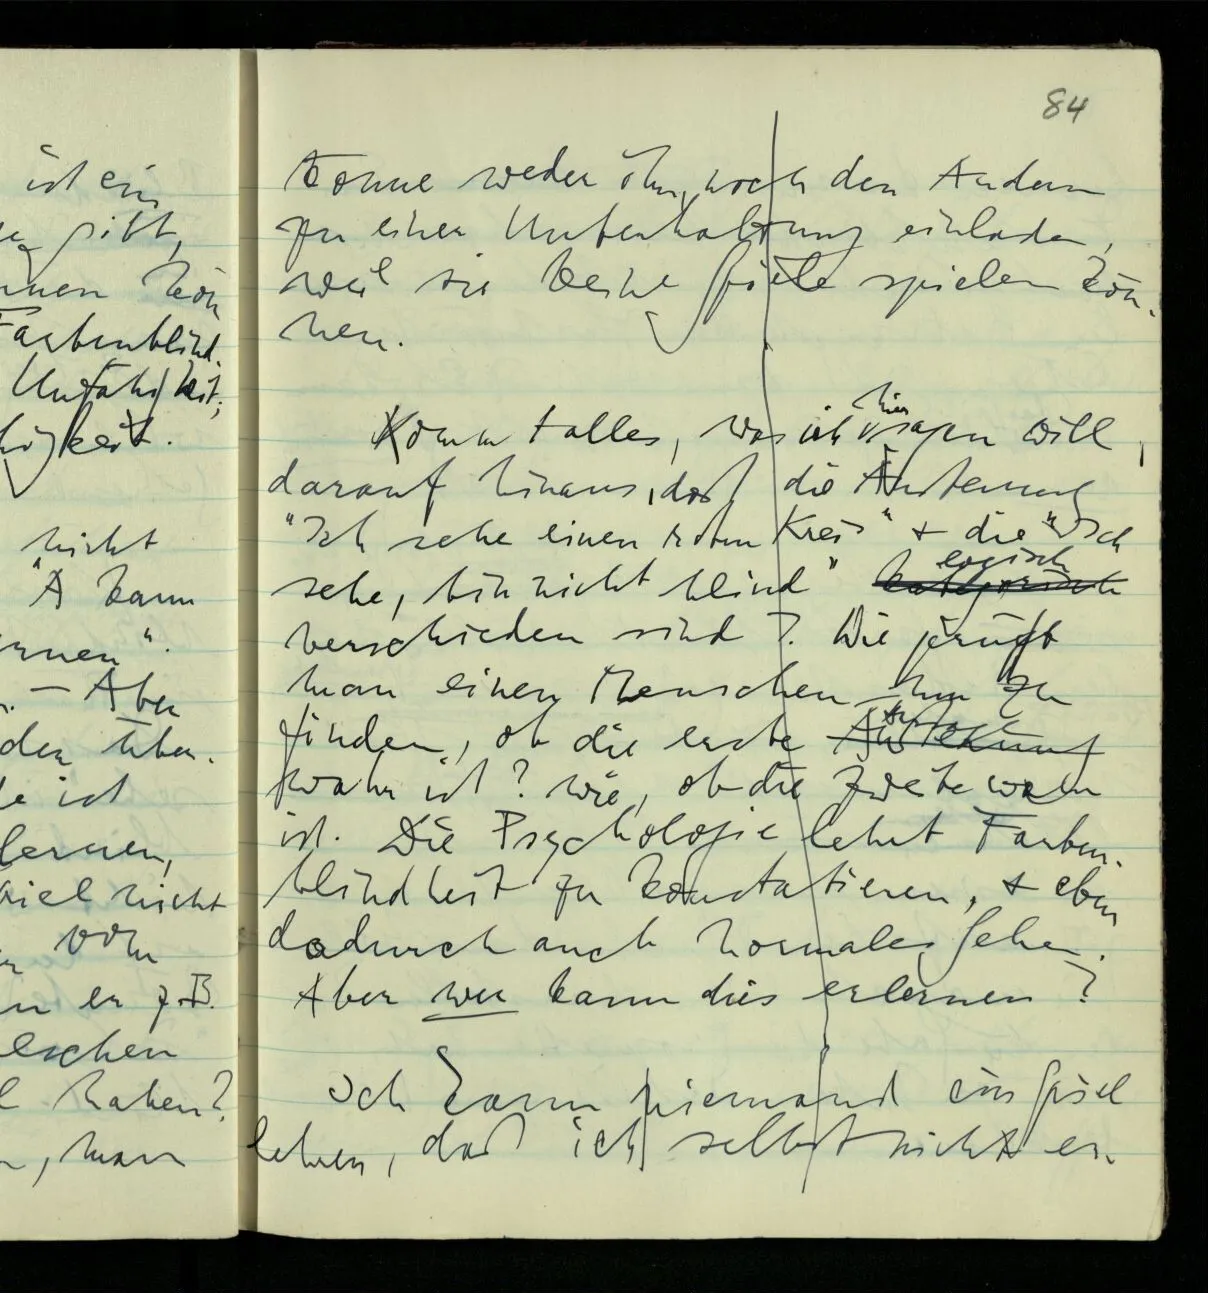 84
ist ein
gibt,
nnen kön
Farbenblind-
Unfähigkeit;
higkeit.
nicht
"A kann
rnen".
. — Aber
der über-
ist
lernen,
piel nicht
von
er z.B.
elschen
haben?
, man
könne weder ihn, noch den Andern
zu einer Unterhaltung einladen,
weil sie keine Spiele spielen kön-
nen.
Kommt alles, was ich hier sagen will,
darauf hinaus, daß die Äußerung
"Ich sehe einen roten Kreis" & die "Ich
sehe, bin nicht blind" kategorisch logisch
verschieden sind? Wie prüft
man einen Menschen um zu
finden, ob die erste
wahr ist? wie, ob die zweite wahr
ist. Die Psychologie lehrt Farben-
blindheit zu konstatieren, & eben
dadurch auch normales Sehen.
Aber wer kann dies erlernen?
Ich kann niemand ein Spiel
lehren, das ich selbst nicht er-